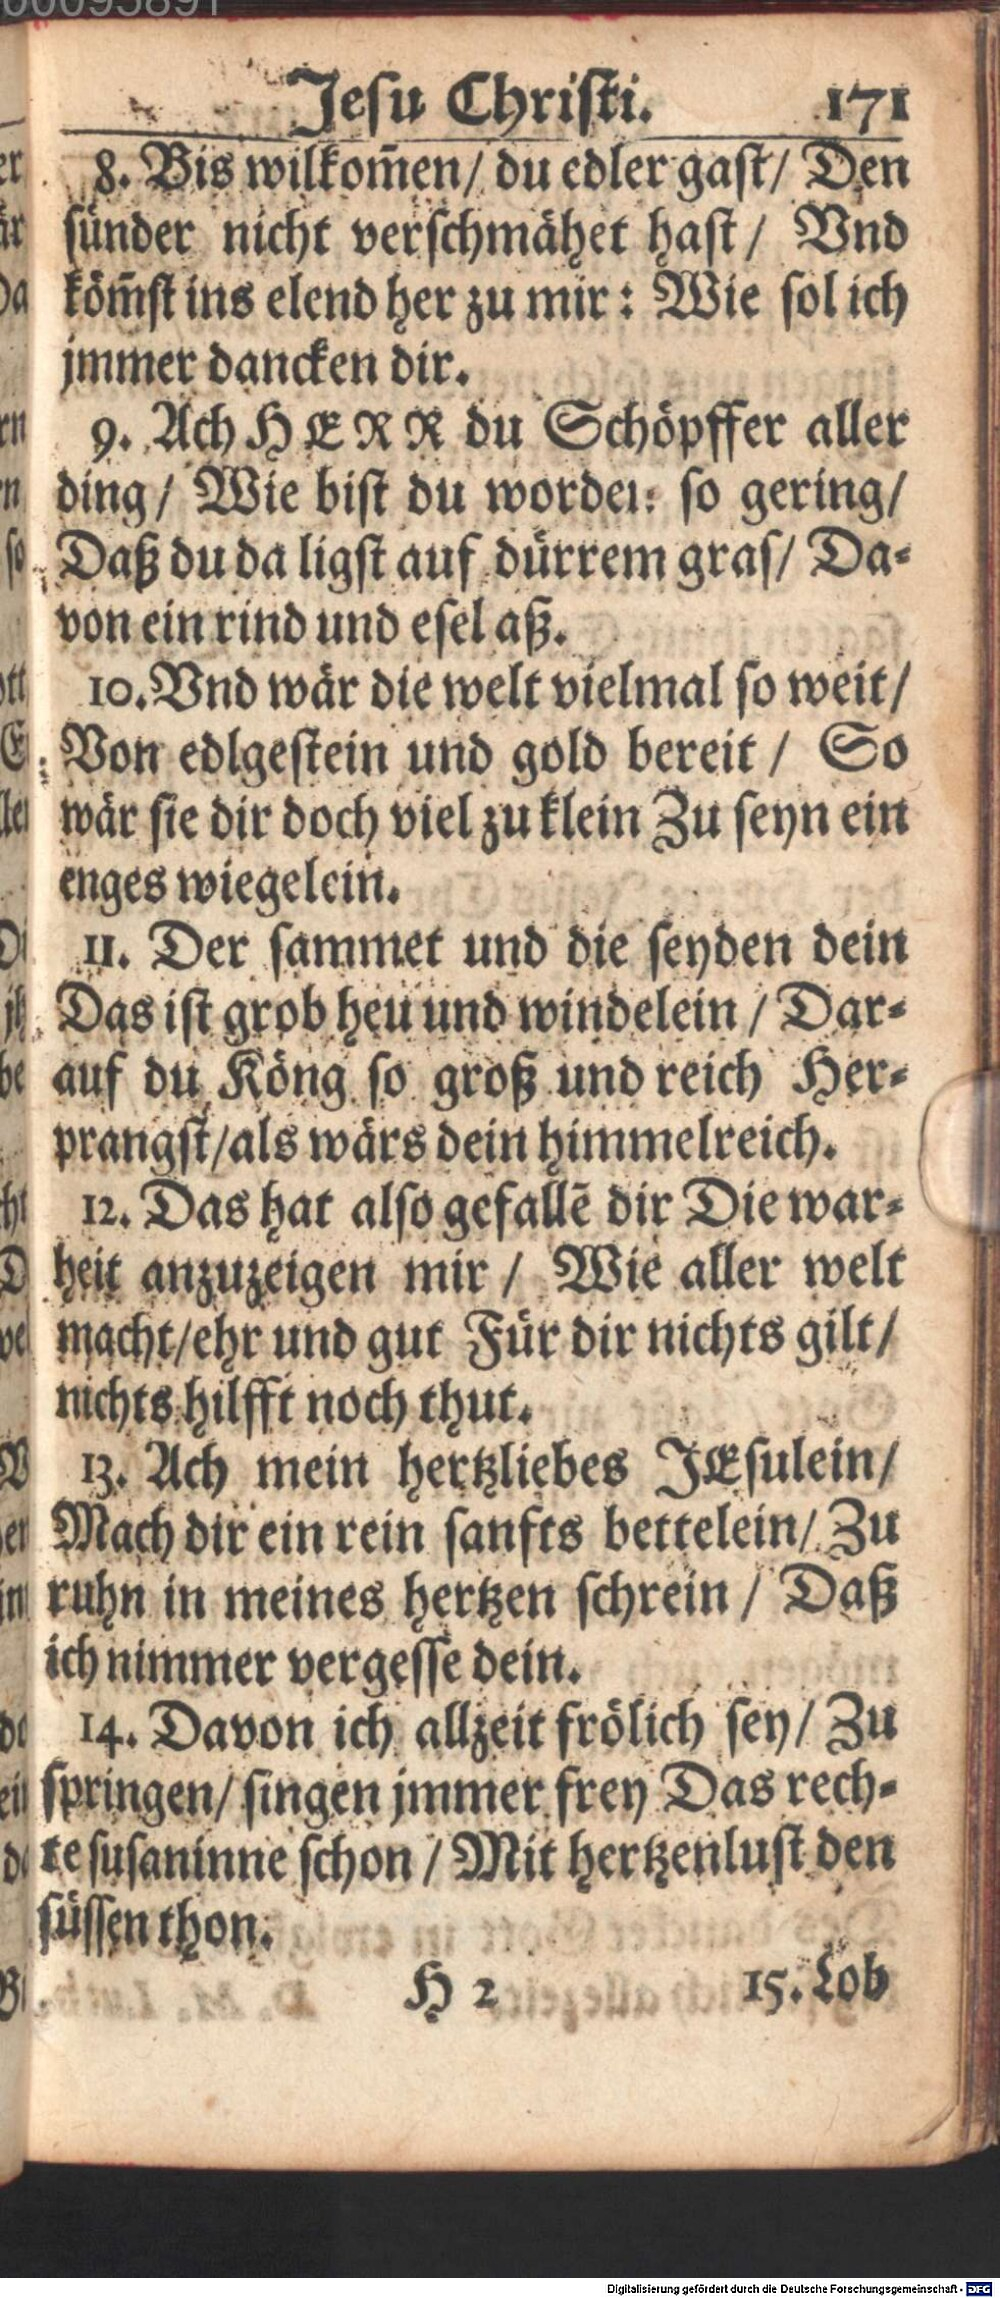 00095891
Jesu Christi. 171
8. Bis wilkom̃en/ du edler gast/ Den
sünder nicht verschmähet hast/ Vnd
köm̃st ins elend her zu mir: Wie sol ich
jmmer dancken dir.
9. Ach HERR du Schöpffer aller
ding/ Wie bist du worden so gering/
Daß du da ligst auf dürrem gras/ Da-
von ein rind und esel aß.
10. Vnd wär die welt vielmal so weit/
Von edlgestein und gold bereit/ So
wär sie dir doch viel zu klein Zu seyn ein
enges wiegelein.
11. Der sammet und die seyden dein
Das ist grob heu und windelein/ Dar-
auf du Köng so groß und reich Her-
prangst/als wärs dein himmelreich.
12. Das hat also gefallẽ dir Die war-
heit anzuzeigen mir/ Wie aller welt
macht/ehr und gut Für dir nichts gilt/
nichts hilfft noch thut.
13. Ach mein hertzliebes JEsulein/
Mach dir ein rein sanfts bettelein/ Zu
ruhn in meines hertzen schrein/ Daß
ich nimmer vergesse dein.
14. Davon ich allzeit frölich sey/ Zu
springen/ singen jmmer frey Das rech-
te susaninne schon/ Mit hertzenlust den
süssen thon.
H 2 15. Lob
Digitalisierung gefördert durch die Deutsche Forschungsgemeinschaft - DFG